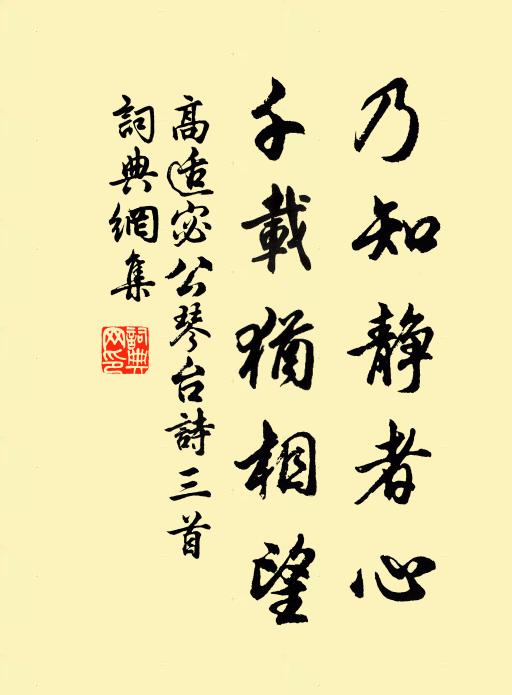 乃知静者心
千載猶相望
高适宓公琴台詩三首
詞典網集
詞典网印